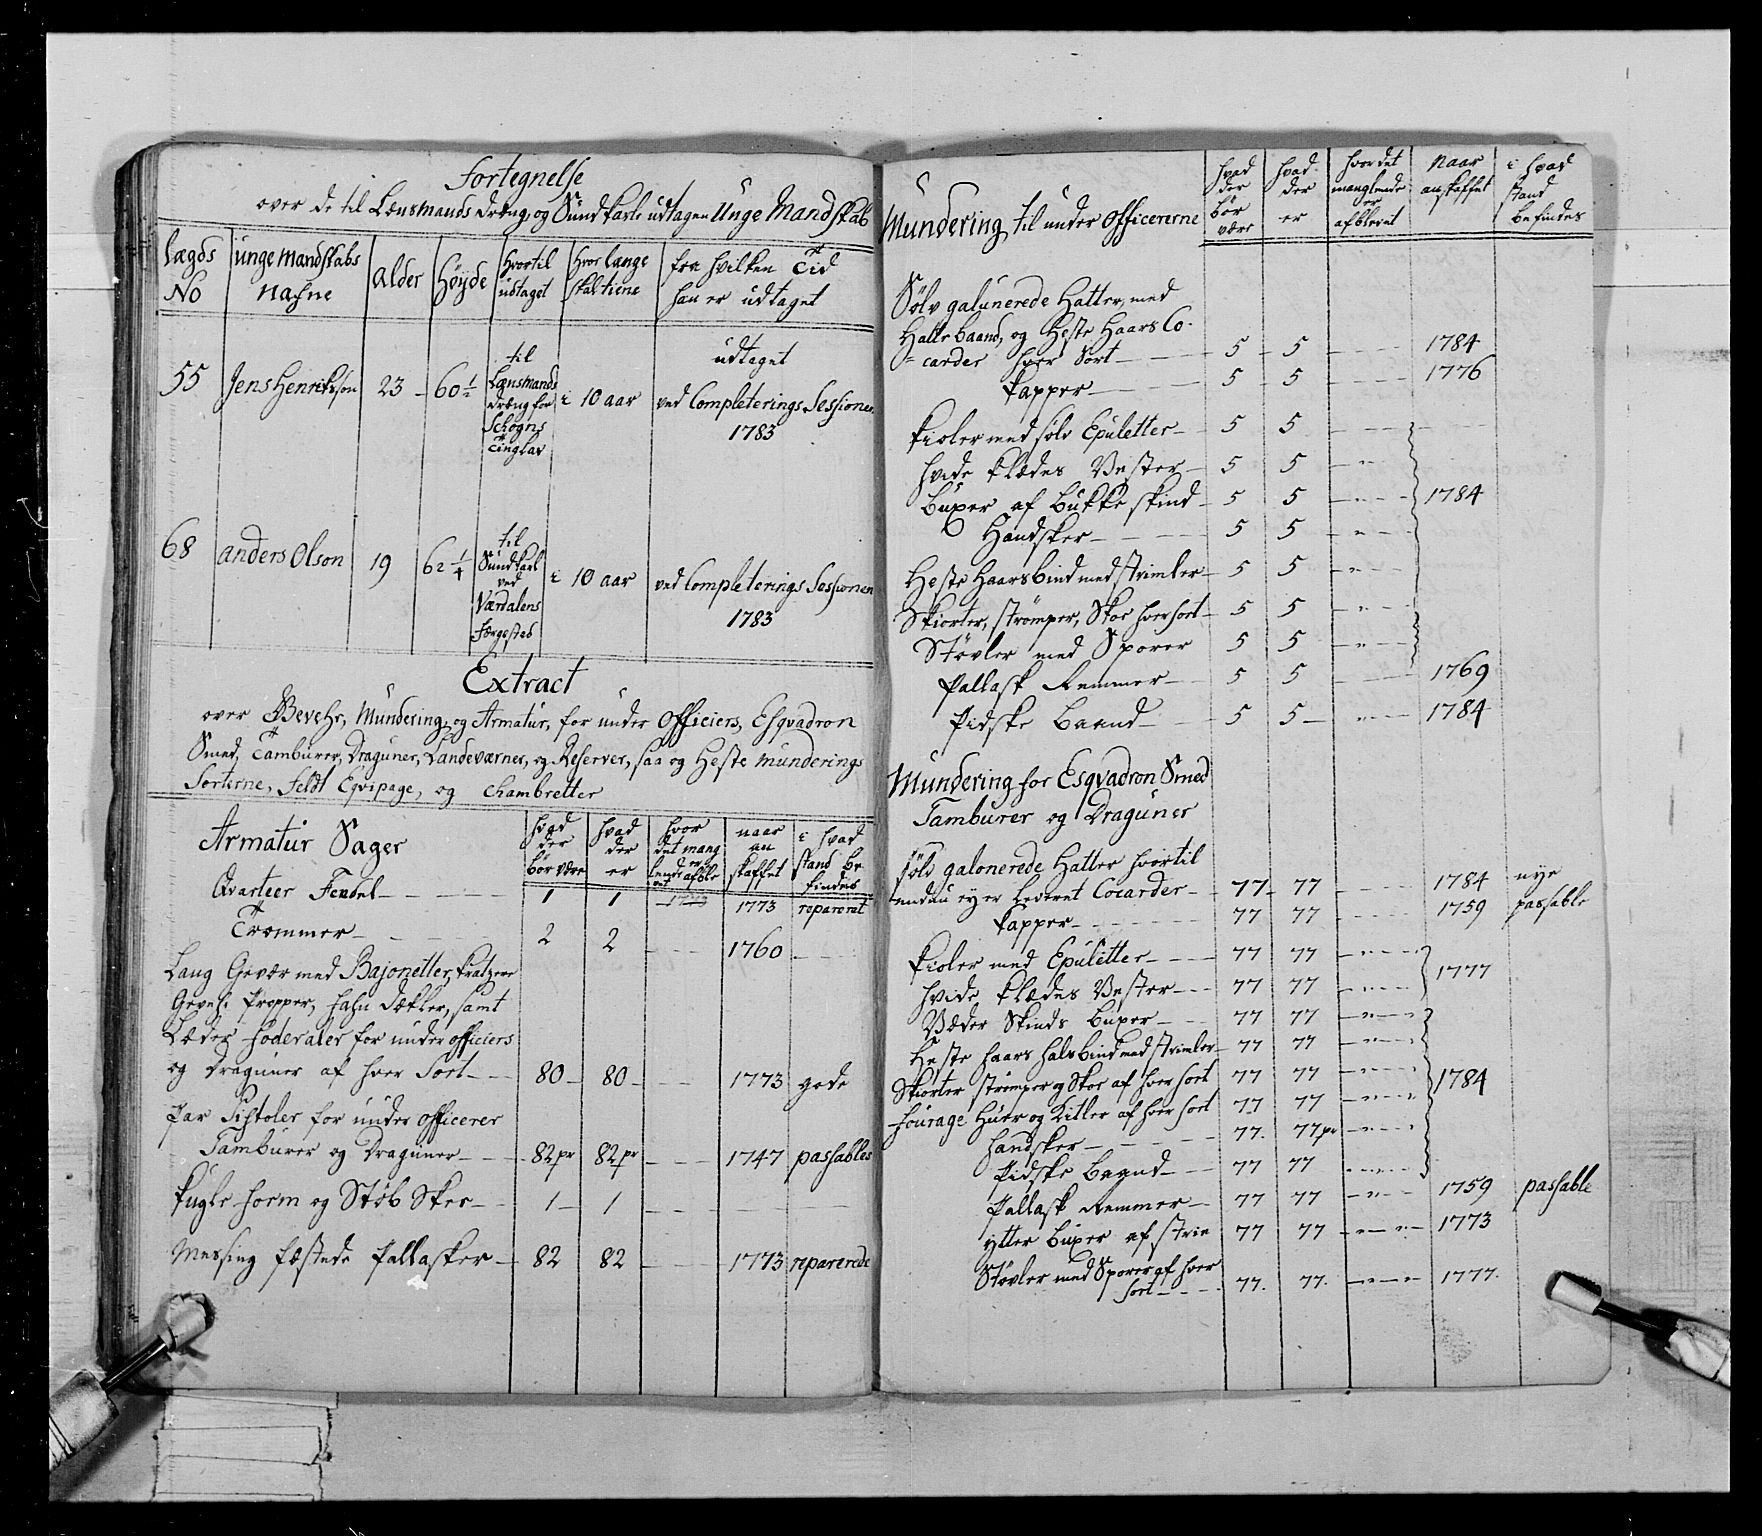 Fortegnelse
over de til Lænsmands Dræng, og Sund Karle udtagen Unge Mandskab
Lægds No | unge Mandskabs Nafne | Alder | Høyde | Hvortil udtaget | Hvor lange skal tiene | fra hvilken Tid han er udtaget
55 | Jens Henrikson | 23 | 60 1/2 | til Lænsmands Dræng for Schogns Tinglav | i 10 aar | udtaget ved Completerings Sessionen 1783
68 | Anders Olson | 19 | 62 1/4 | til Sund Karl ved Værdalens Færgested | i 10 aar | ved Completerings Sessionen 1783
Extract
over Gevehr, Mundering, og Armatur, for under Officiers, Esqvadron
Smed, Tamburer, Draguner, Landeværner, og Reserver, saa og Heste munderings
Sorterne, Feldt Eqvipage, og Chambretter
Armatur Sager | hvad der bør være | hvad der er | hvor det manglende er afblevet | naar anskaffet | i hvad stand befindes
Qvarteer Fendel | 1 | 1 | 1773 | 1773 | repareret
Trommer | 2 | 2 | | 1760
Lang Gevær med Bajonetter, Kratzere
Gevehr Propper, Hahn Dækler, samt
Læder Foderaler for under officiers
og Draguner af hver Sort | 80 | 80 | | 1773 | gode
Par Pistoler for under officerer
Tamburer og Draguner | 82 pr | 82 pr | | 1747 | passables
Kugle Form og Støb Skee | 1 | 1
Messing fæstede Pallasker | 82 | 82 | | 1773 | reparerede
Mundering til under Officererne | hvad der bør være | hvad der er | hvor det manglende er afblevet | Naar anskaffet | i hvad stand befindes
Sølv galunerede Hatter, med
Hatte baand, og Heste Haars Co-
carder hver Sort | 5 | 5 | | 1784
Kapper | 5 | 5 | | 1776
Kioler med sølv Epuletter | 5 | 5
hvide Klædes Vester | 5 | 5 | "
Buxer af Bukke skind | 5 | 5 | " | 1784
Handsker | 5 | 5 | "
Heste Haarsbind med strimler | 5 | 5 | "
Skiorter, strømper, Skoe hver sort | 5 | 5 | "
Støvler med Sporer | 5 | 5 | "
Pallask Remmer | 5 | 5 | | 1769
Pidske Baand | 5 | 5 | " | 1784
Mundering for Esqvadron Smed
Tamburer og Draguner
sølv galonerede Hatter hvortil
endnu ey er Leveret Cocarder | 77 | 77 | | 1784 | nye
Kapper | 77 | 77 | | 1759 | passable
Kioler med Epuletter | 77 | 77 | "
hvide Klædes Vester | 77 | 77 | " | 1777
Væder Skinds Buxer | 77 | 77 | "
Heste haars halsbind med strimler | 77 | 77 | "
Skiorter strømper og Skoe af hver sort | 77 | 77 | " | 1784
Fourage Huer og Kitler af hver sort | 77 | 77 | "
Handsker | 77. | 77 pr | "
Pidske Baand | 77 | 77 | "
Pallask Remmer | 77 | 77 | " | 1759 | passable
ytter Buxer af strie | 77 | 77 | " | 1773
Støvler med Sporer af hver
sort | 77. | 77. | " | 1777.